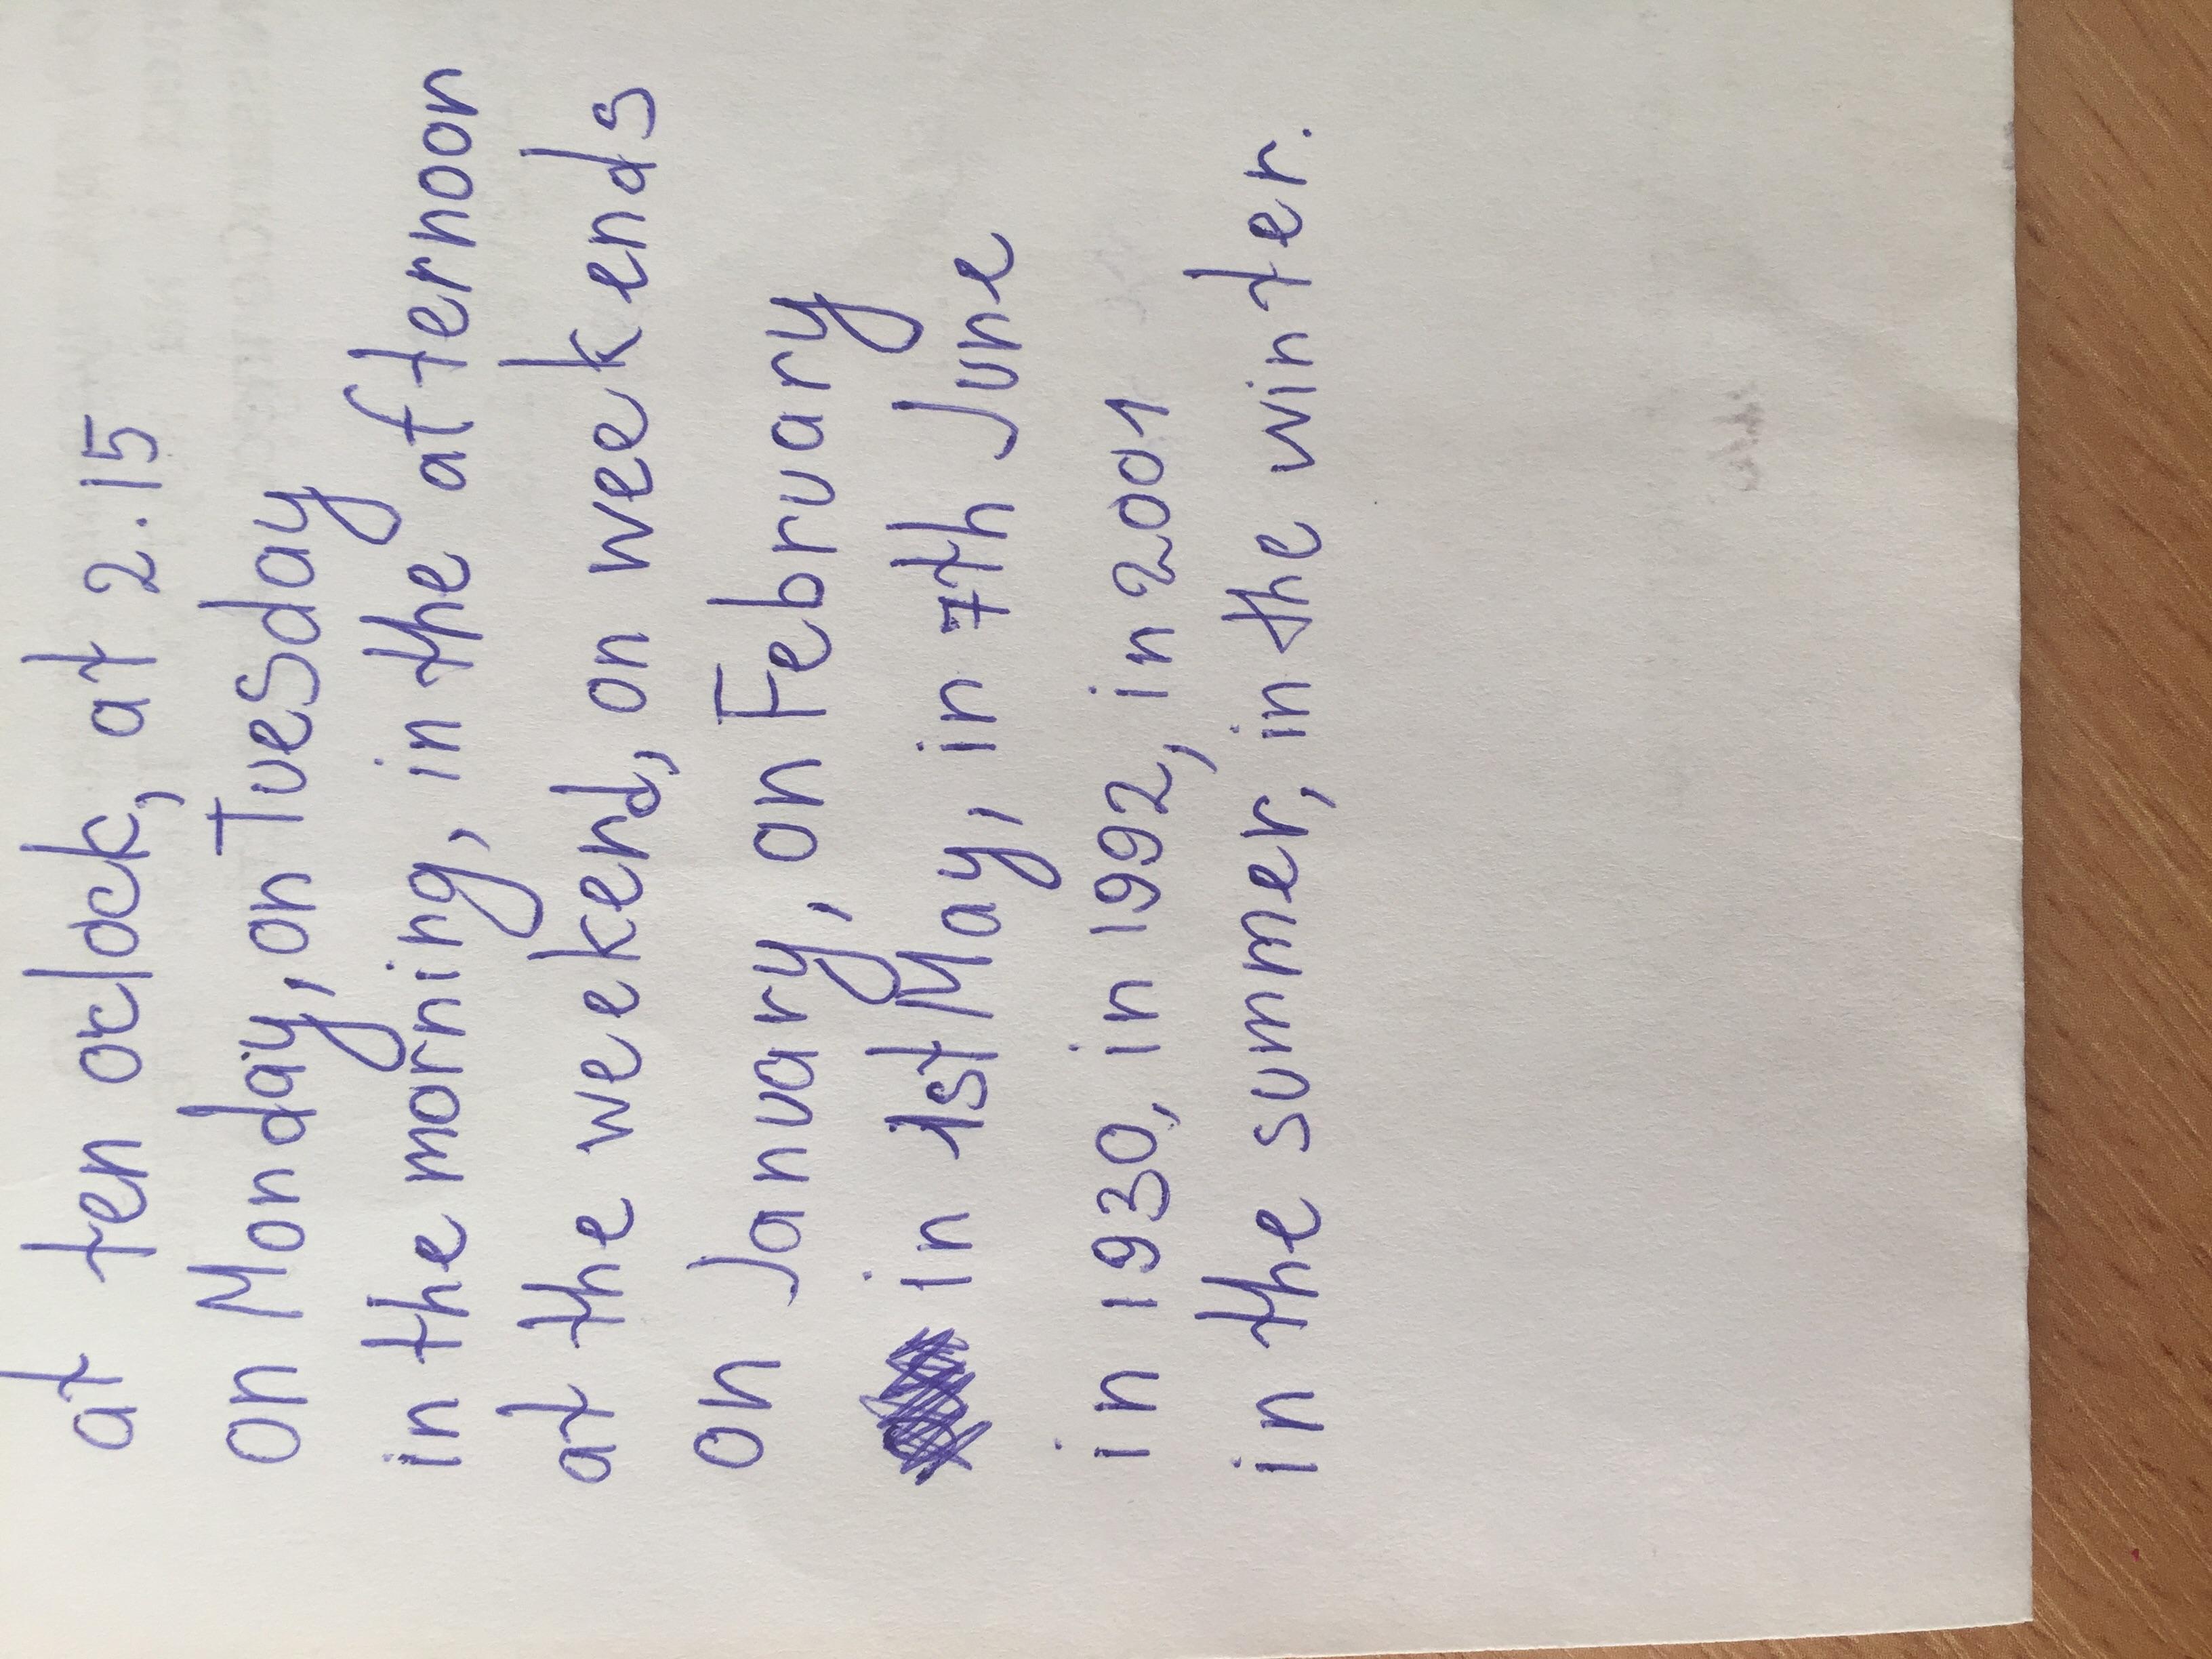 at ten oclock, at 2.15
on Monday, on Tuesday
in the morning, in the afternoon
at the weekend, on weekends
on January, on February
in 1st May, in 7th June
in 1930, in 1992, in 2001
in the summer, in the winter.